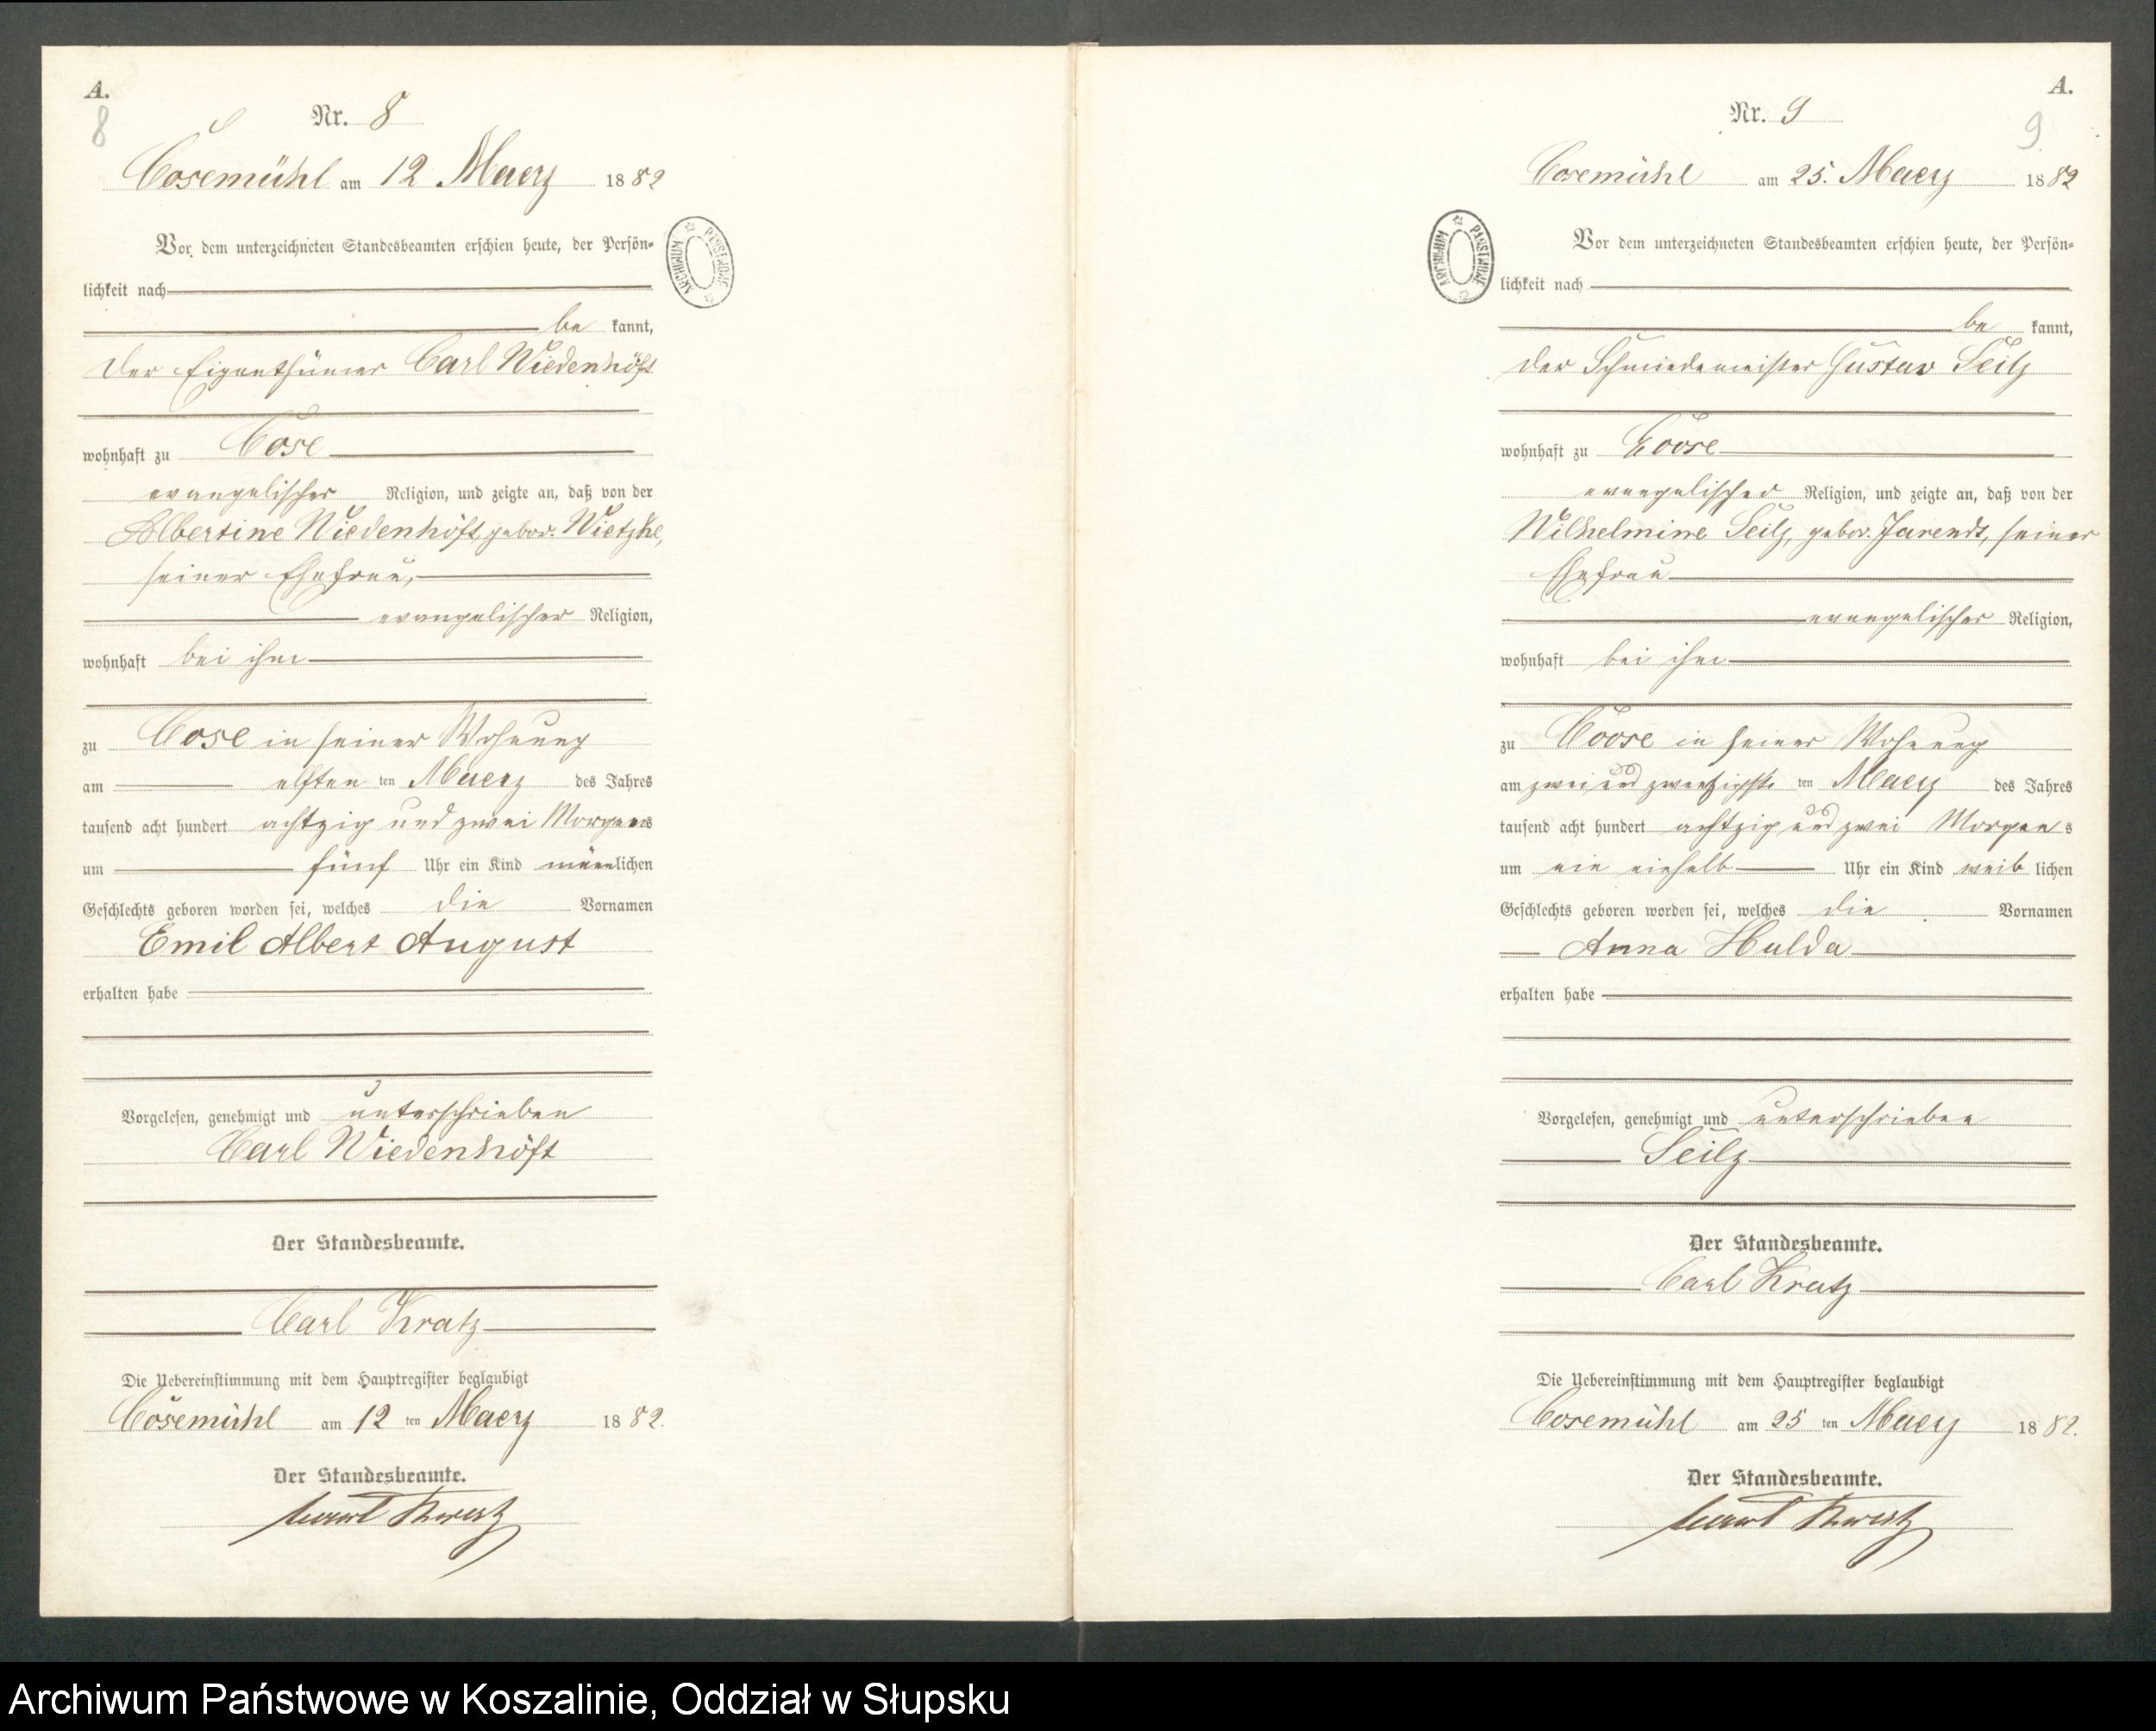 A.
8
Nr. 8
Cosemühl am 12 Maerz 1882
Vor dem unterzeichneten Standesbeamten erschien heute, der Persön-
lichkeit nach
be kannt,
der Eigenthümer Carl Wiedenhöft
wohnhaft zu Cose
evangelischer Religion, und zeigte an, daß von der
Albertine Wiedenhöft, gebor. Wietzke,
seiner Ehefrau,
evangelischer Religion,
wohnhaft bei ihm
zu Cose in seiner Wohnung
am elften ten Maerz des Jahres
tausend acht hundert achtzig und zwei Morgens
um fünf Uhr ein Kind männlichen
Geschlechts geboren worden sei, welches die Vornamen
Emil Albert August
erhalten habe
Vorgelesen, genehmigt und unterschrieben
Carl Wiedenhöft
Der Standesbeamte.
Carl Kratz
Die Uebereinstimmung mit dem Hauptregister beglaubigt
Cosemühl am 12 ten Maerz 1882.
Der Standesbeamte.
Carl Kratz
ARCHIWUM PAŃSTWOWE
A.
9
Nr. 9
Cosemühl am 25. Maerz 1882
Vor dem unterzeichneten Standesbeamten erschien heute, der Persön-
lichkeit nach
be kannt,
der Schmiedemeister Gustav Seilz
wohnhaft zu Coose
evangelischer Religion, und zeigte an, daß von der
Wilhelmine Seilz, gebor. Jarendt, seiner
Ehefrau
evangelischer Religion,
wohnhaft bei ihm
zu Coose in seiner Wohnung
am zwei und zwanzigste ten Maerz des Jahres
tausend acht hundert achtzig und zwei Morgens
um ein einhalb Uhr ein Kind weib lichen
Geschlechts geboren worden sei, welches die Vornamen
Anna Hulda
erhalten habe
Vorgelesen, genehmigt und unterschrieben
Seilz
Der Standesbeamte.
Carl Kratz
Die Uebereinstimmung mit dem Hauptregister beglaubigt
Cosemühl am 25 ten Maerz 1882.
Der Standesbeamte.
Carl Kratz
ARCHIWUM PAŃSTWOWE
Archiwum Państwowe w Koszalinie, Oddział w Słupsku